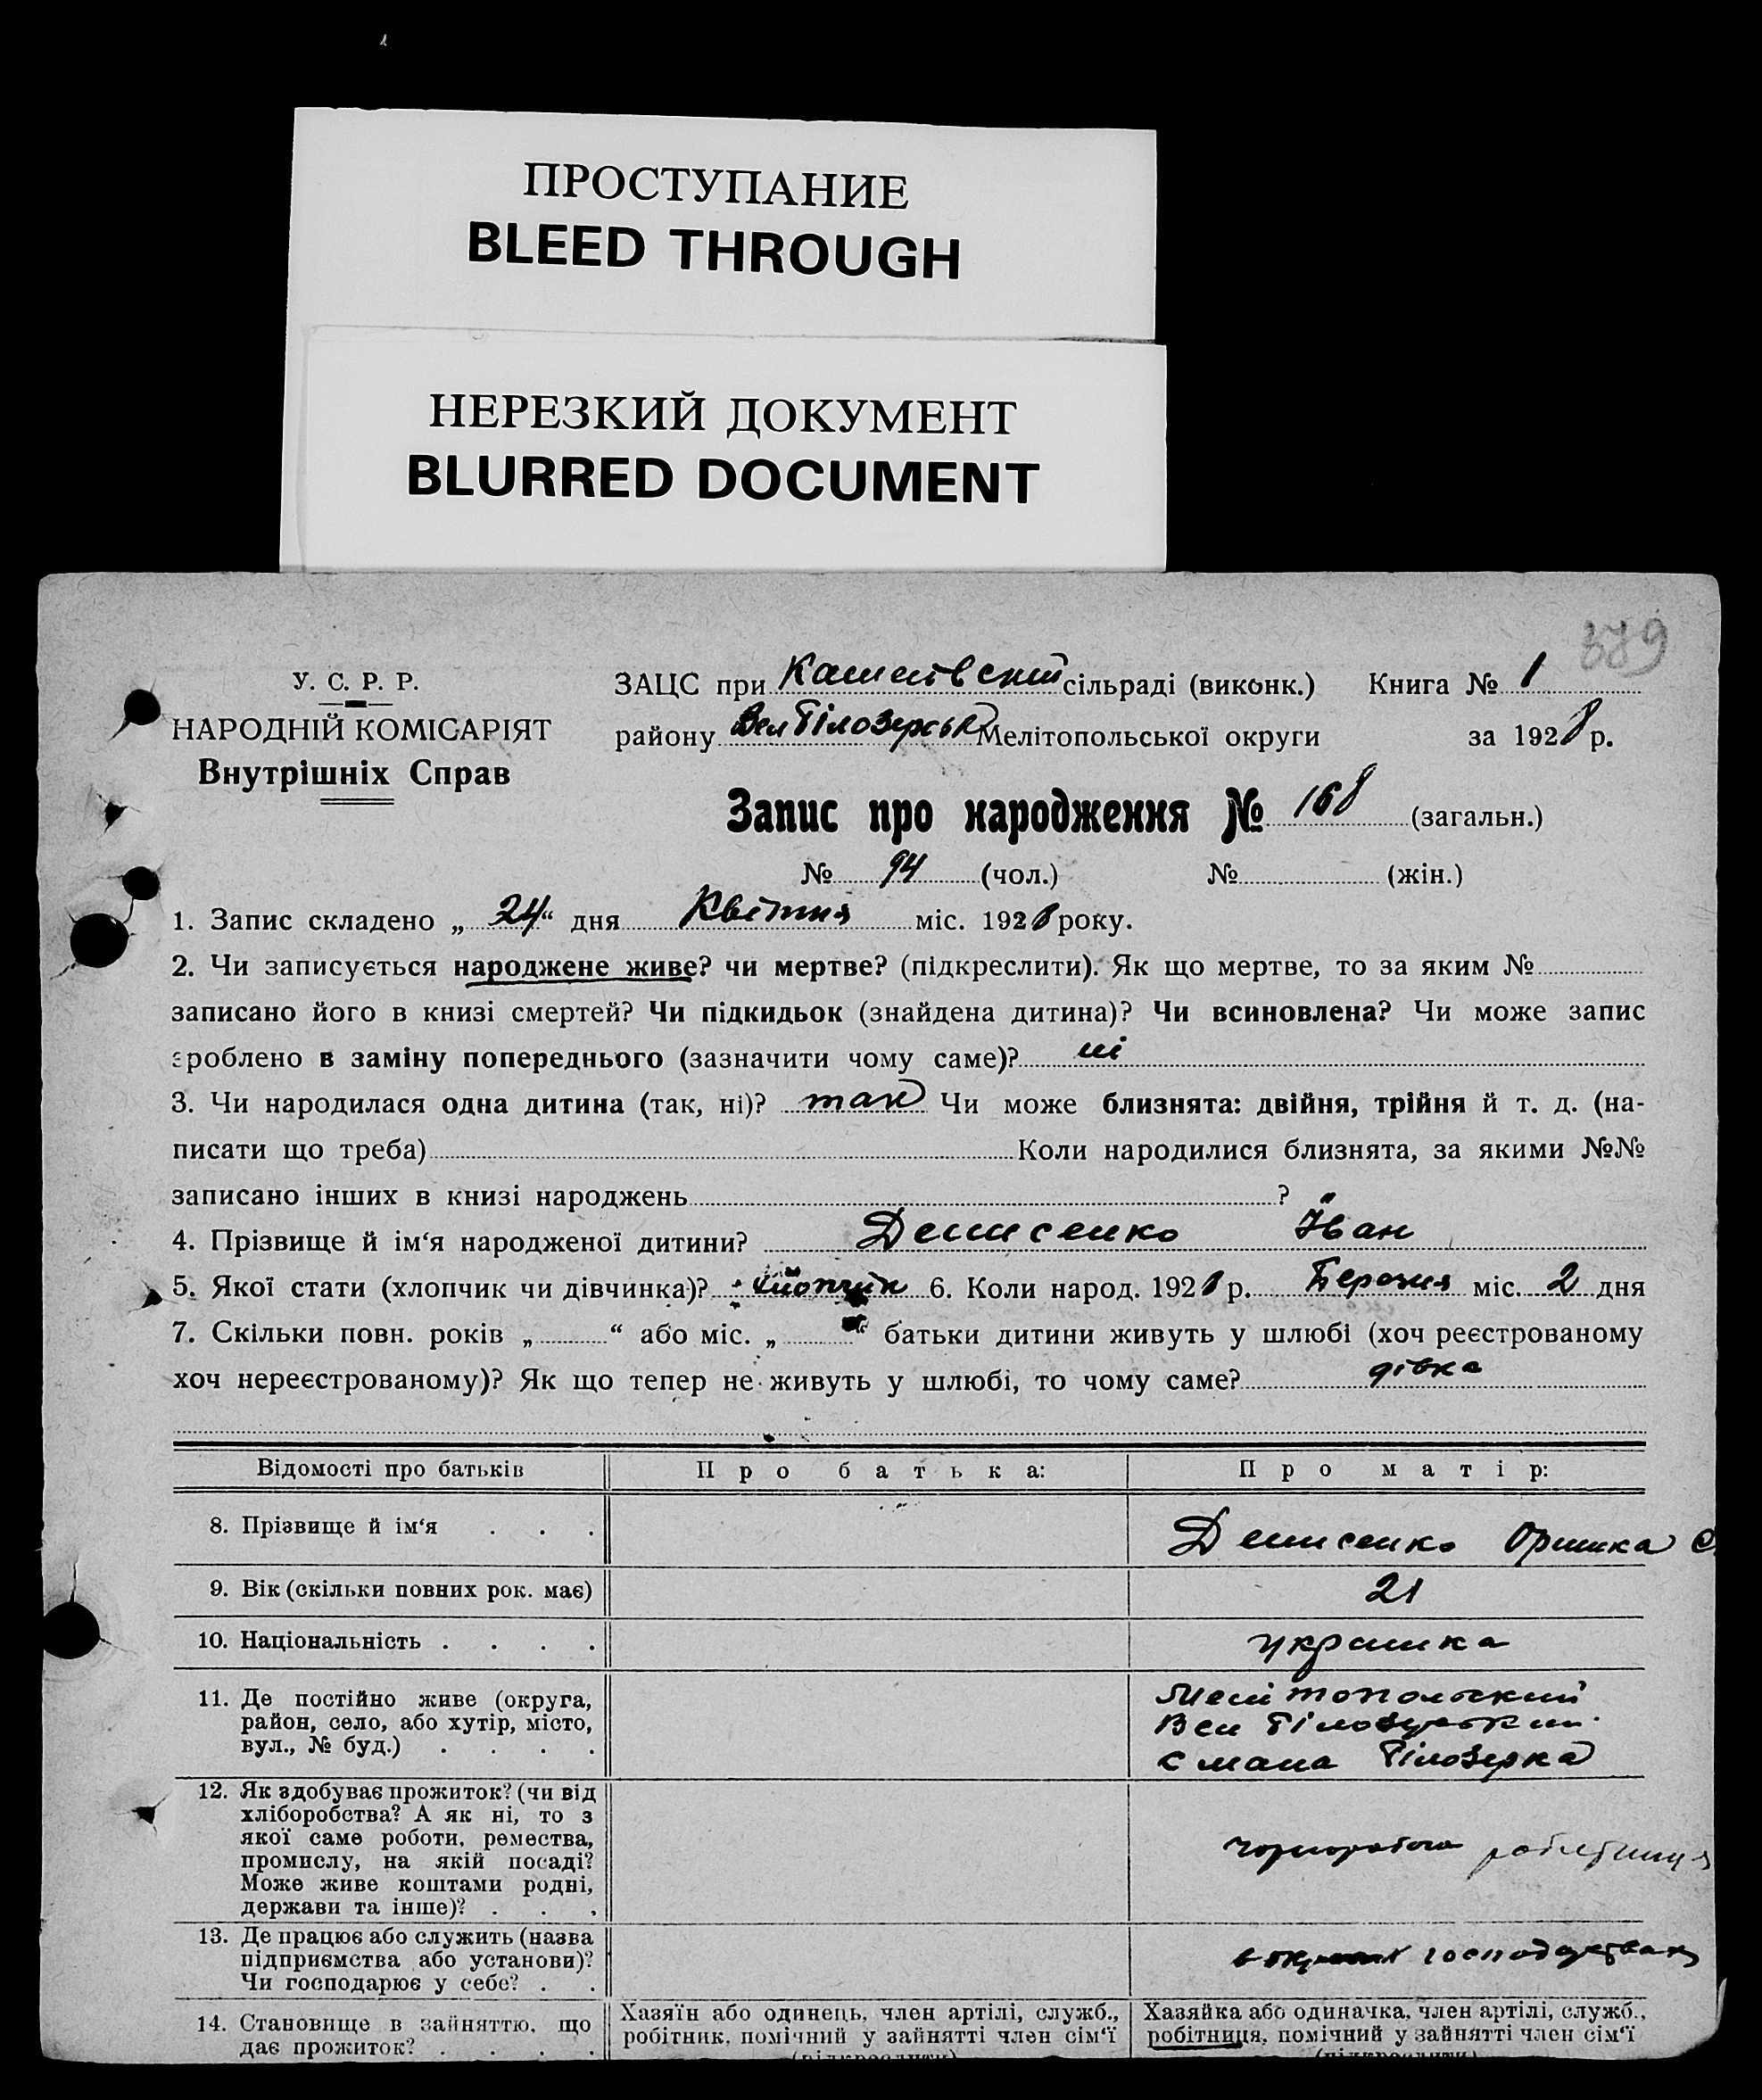 ПРОСТУПАНИЕ
BLEED THROUGH
НЕРЕЗКИЙ ДОКУМЕНТ
BLURRED DOCUMENT
У. С. Р. Р.
НАРОДНІЙ КОМІСАРІЯТ
Внутрішніх Справ
ЗАЦС при сільраді (виконк.) Книга № 1
району Вел Білозерськ Мелітопольської округи за 1928 р.
Запис про народження № 168 (загальн.)
№ 94 (чол.) № (жін.)
1. Запис складено „ 24 “ дня Квітня міс. 1928 року.
2. Чи записується народжене живе? чи мертве? (підкреслити). Як що мертве, то за яким №
записано його в книзі смертей? Чи підкидьок (знайдена дитина)? Чи всиновлена? Чи може запис
зроблено в заміну попереднього (зазначити чому саме)? ні
3. Чи народилася одна дитина (так, ні)? так Чи може близнята: двійня, трійня й т. д. (на-
писати що треба) Коли народилися близнята, за якими №№
записано інших в книзі народжень ?
4. Прізвище й ім‘я народженої дитини? Денисенко Іван
5. Якої стати (хлопчик чи дівчинка)? хлопчик 6. Коли народ. 1928 р. Березня міс. 2 дня
7. Скільки повн. років „ “ або міс. „ “ батьки дитини живуть у шлюбі (хоч реєстрованому
хоч нереєстрованому)? Як що тепер не живуть у шлюбі, то чому саме? дівка
Відомості про батьків Про батька: Про матір:
8. Прізвище й ім‘я . . . Денисенко Оришка С.
9. Вік (скільки повних рок. має) 21
10. Національність . . . . українка
11. Де постійно живе (округа,
район, село, або хутір, місто,
вул., № буд.) . . . .
Мелітопольский
Вел Білозерский
с мала Білозерка
12. Як здобуває прожиток? (чи від
хліборобства? А як ні, то з
якої саме роботи, ремества,
промислу, на якій посаді?
Може живе коштами родні,
держави та інше)? . . .
чорноробоча робітниця
13. Де працює або служить (назва
підприємства або установи)?
Чи господарює у себе? . .
господарствах
14. Становище в зайняттю, що
дає прожиток? . . . .
Хазяїн або одинець, член артілі, служб.,
робітник, помічний у зайнятті член сім‘ї
(підкреслити)
Хазяйка або одиначка, член артілі, служб.,
робітниця, помічний у зайнятті член сім‘ї
(підкреслити)